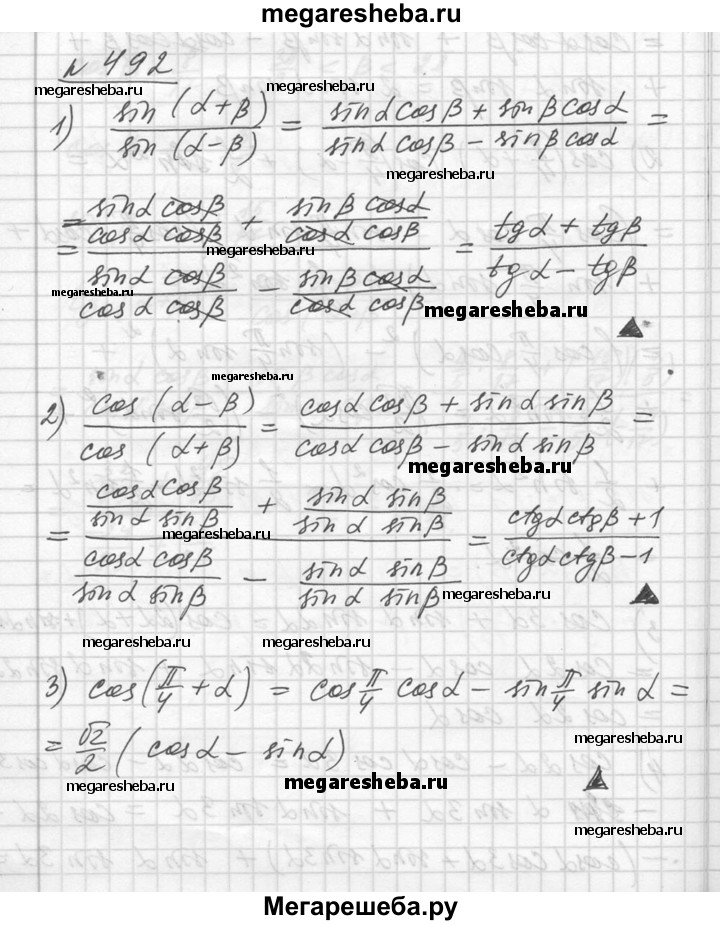 megaresheba.ru
№ 492
megaresheba.ru megaresheba.ru
1) sin (α+β) / sin (α-β) = sinα cosβ + sinβ cosα / sinα cosβ - sinβ cosα =
megaresheba.ru
= sinα cosβ / cosα cosβ + sinβ cosα / cosα cosβ = tgα + tgβ
megaresheba.ru
sinα cosβ / cosα cosβ - sinβ cosα / cosα cosβ tgα - tgβ
megaresheba.ru megaresheba.ru
megaresheba.ru
2) cos (α-β) / cos (α+β) = cosα cosβ + sinα sinβ / cosα cosβ - sinα sinβ =
megaresheba.ru
= cosα cosβ / sinα sinβ + sinα sinβ / sinα sinβ = ctgα ctgβ + 1
megaresheba.ru
cosα cosβ / sinα sinβ - sinα sinβ / sinα sinβ ctgα ctgβ - 1
megaresheba.ru
megaresheba.ru megaresheba.ru
3) cos(π/4 + α) = cos π/4 cosα - sin π/4 sinα =
= √2/2 (cosα - sinα)
megaresheba.ru megaresheba.ru megaresheba.ru
megaresheba.ru
Мегарешеба.ру